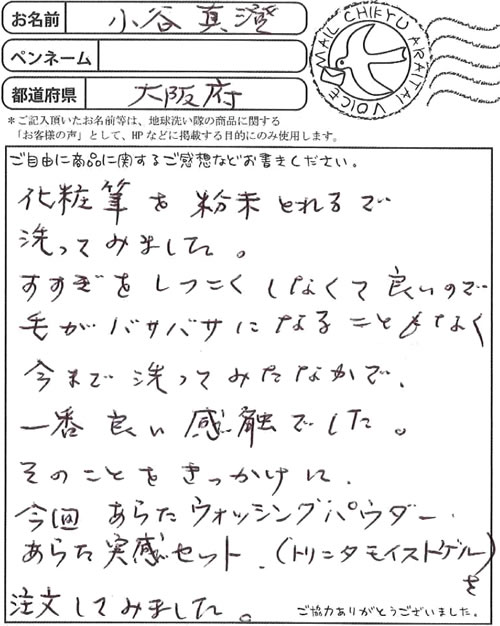 お名前 小谷真澄
ペンネーム
都道府県 大阪府
MAIL CHIKYU ARAITAI VOICE
＊ご記入頂いたお名前等は、地球洗い隊の商品に関する
「お客様の声」として、HPなどに掲載する目的にのみ使用します。
ご自由に商品に関するご感想などお書きください。
化粧筆を粉末とれるで
洗ってみました。
すすぎをしつこくしなくて良いので
毛がバサバサになることもなく
今まで洗ってみたなかで、
一番良い感触でした。
そのことをきっかけに、
今回あらたウォッシングパウダー、
あらた実感セット、(トリニタモイストゲル)を
注文してみました。
ご協力ありがとうございました。